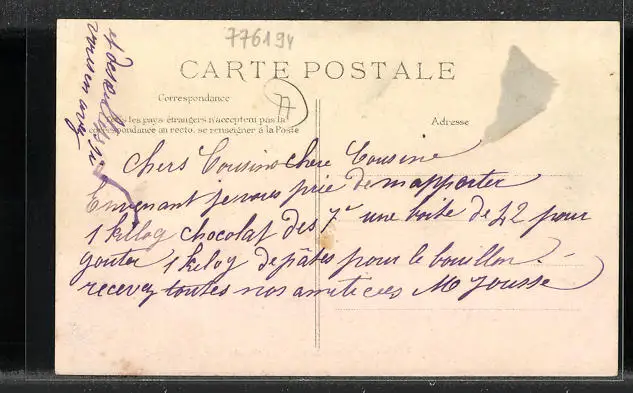 776194
CARTE POSTALE
Correspondance
Tous les pays étrangers n'acceptent pas la
correspondance au recto, se renseigner à la Poste
Adresse
A
chers Cousins chere Cousine
En venant je vous prie de m apporter
1 kilog chocolat des 7 une boite de 42 pour
gouter 1 kilog de pâtes pour le bouillon
recevez toutes nos amitiées M Jousse